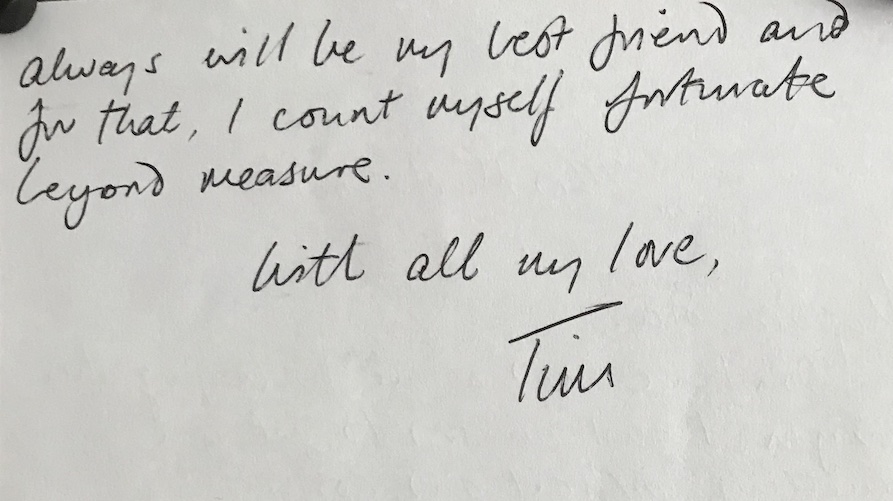 always will be my best friend and
for that, I count myself fortunate
beyond measure.
With all my love,
Tim